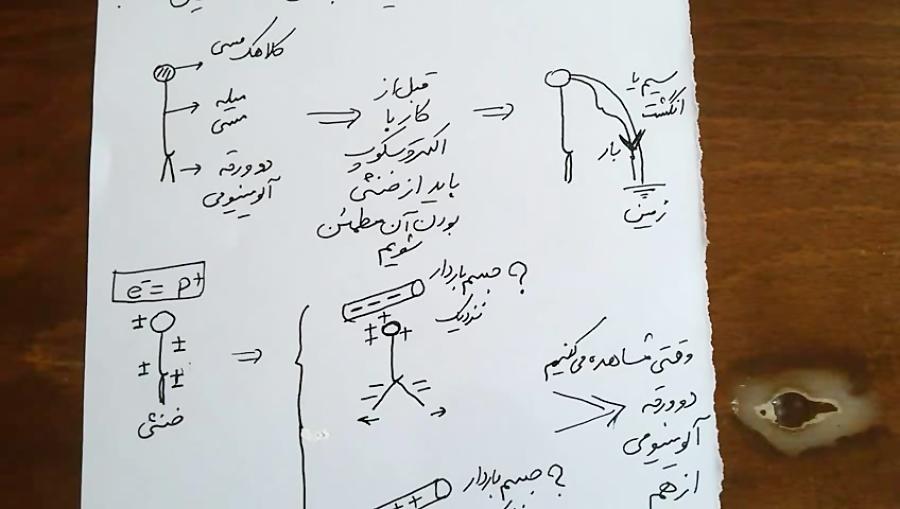 کلاهک مسی
میله
مسی
دو ورقه
آلومینیومی
قبل از
کار با
الکتروسکوپ
باید از خنثی
بودن آن مطمئن
شویم
سیم یا
انگشت
بار
زمین
e⁻ = P⁺
±
±
±
±
خنثی
? جسم باردار
نزدیک
- - -
+
±
+
=
=
وقتی مشاهده می‌کنیم
دو ورقه
آلومینیومی
از هم
? جسم باردار
+ +